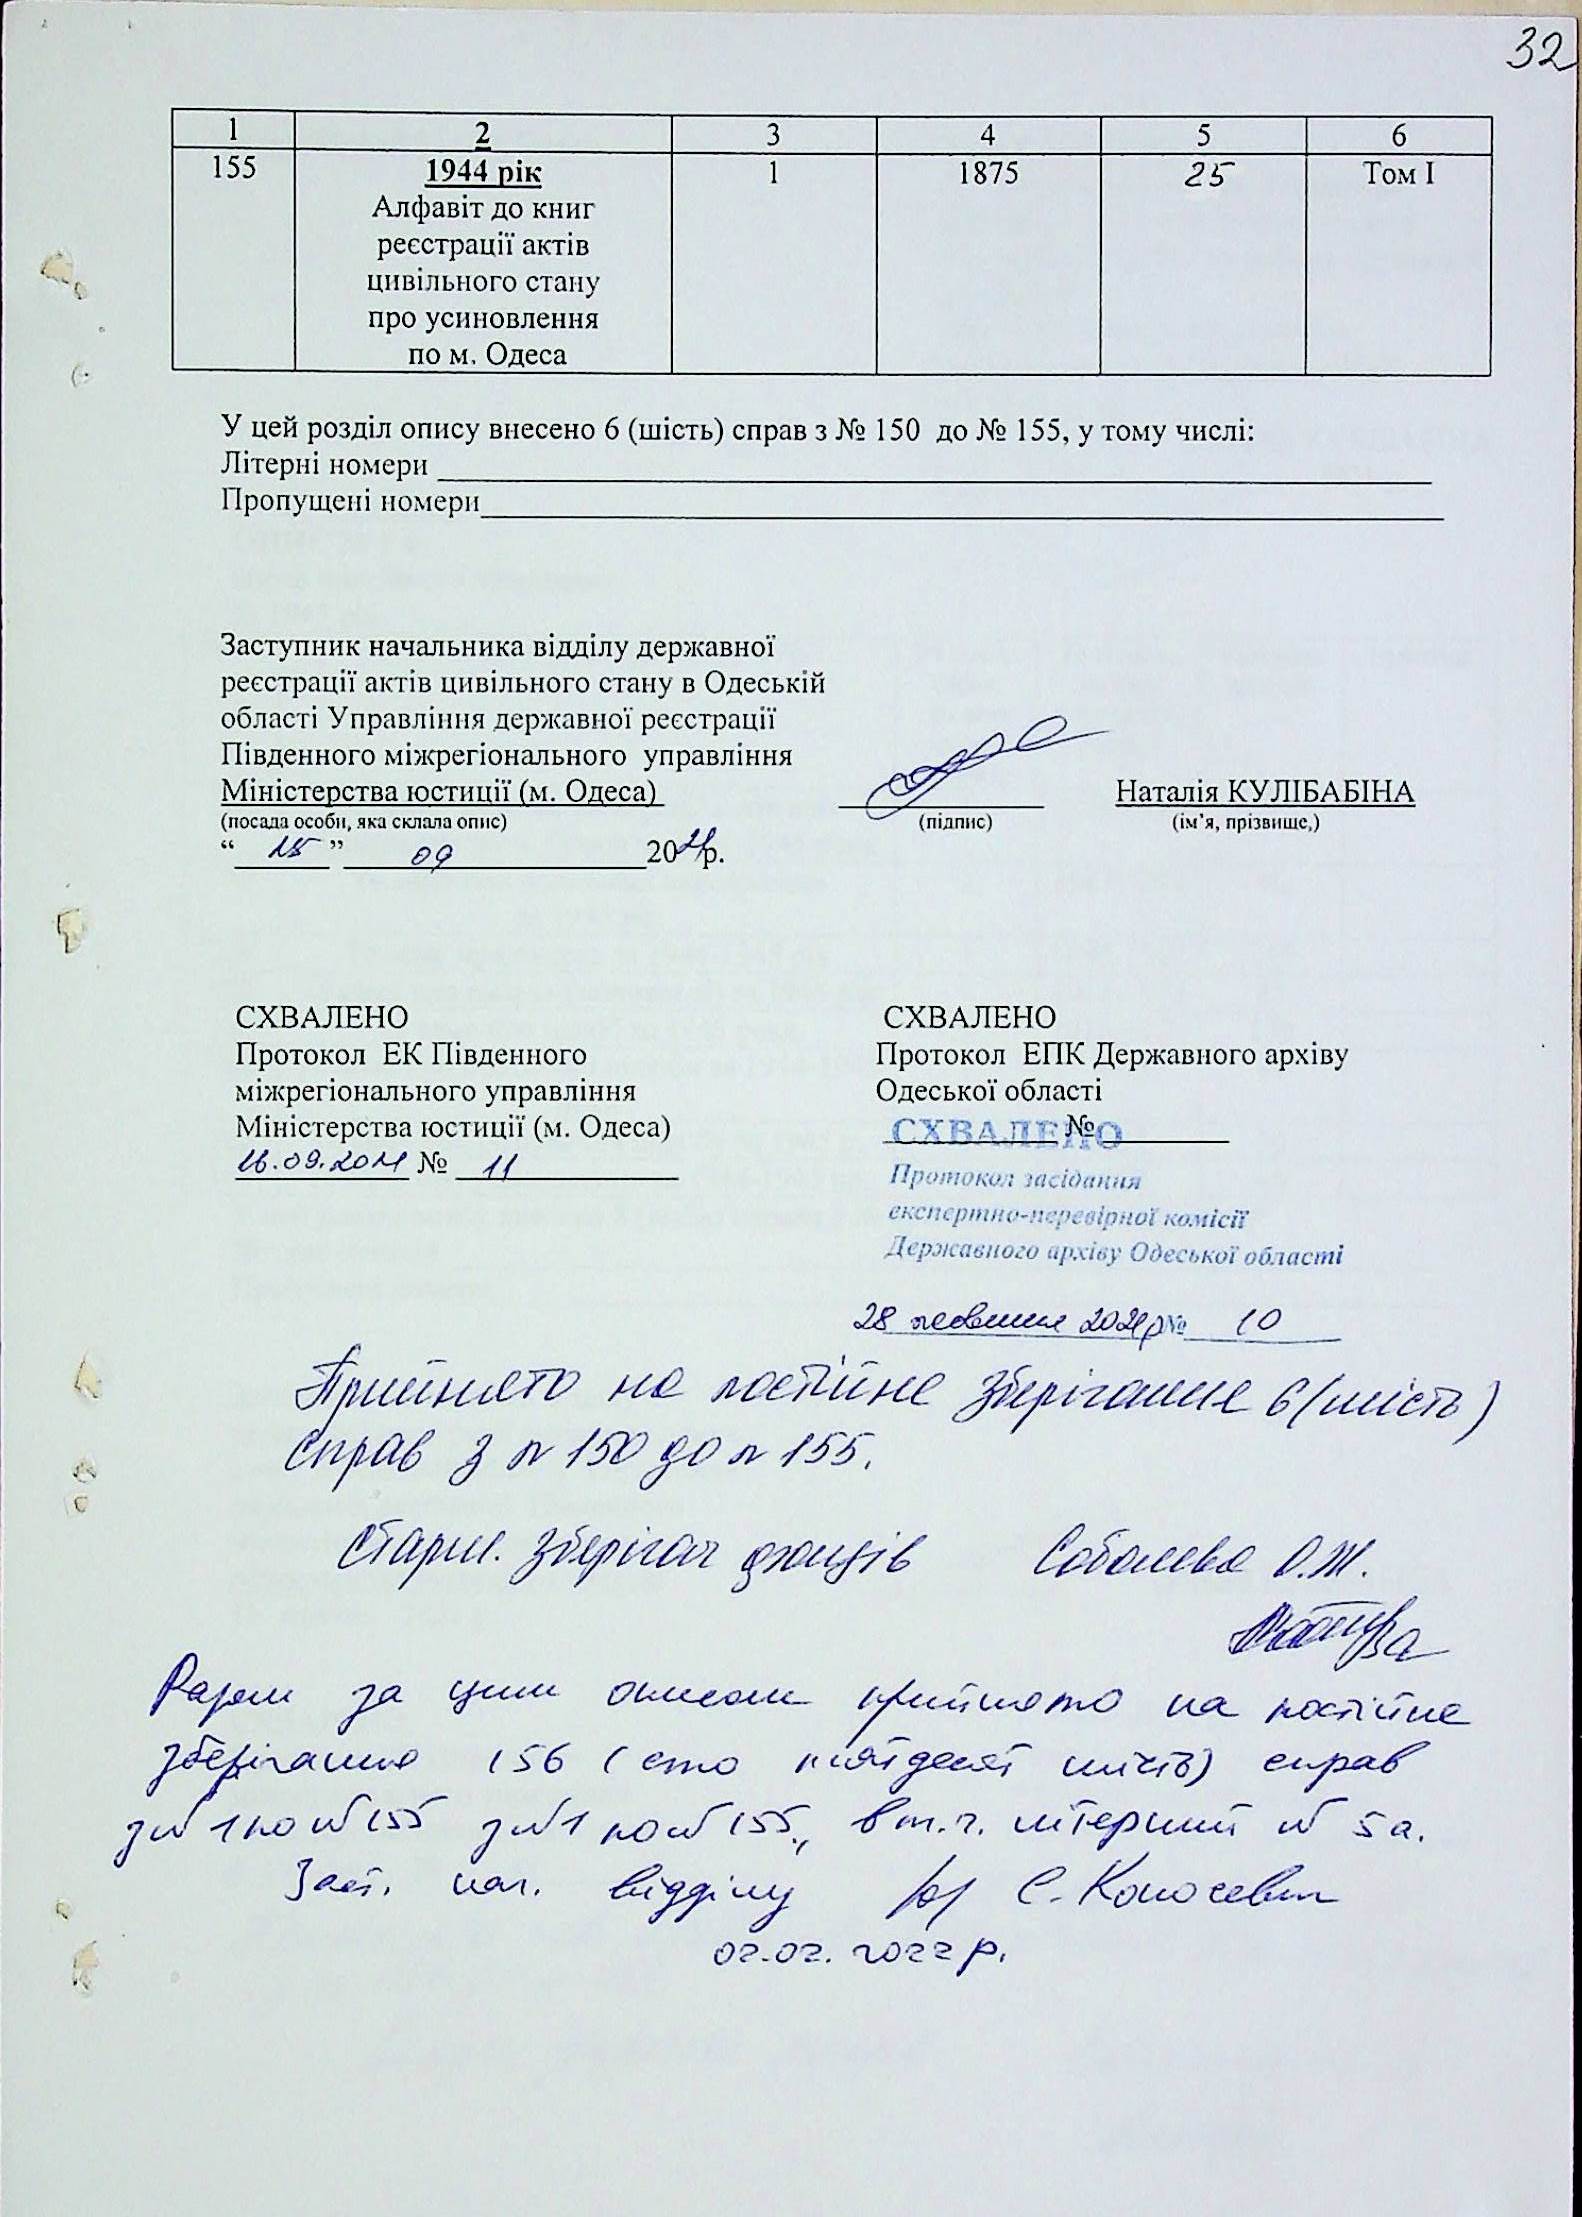 32
1 2 3 4 5 6
155 1944 рік 1 1875 25 Том I
Алфавіт до книг
реєстрації актів
цивільного стану
про усиновлення
по м. Одеса
У цей розділ опису внесено 6 (шість) справ з № 150 до № 155, у тому числі:
Літерні номери
Пропущені номери
Заступник начальника відділу державної
реєстрації актів цивільного стану в Одеській
області Управління державної реєстрації
Південного міжрегіонального управління
Міністерства юстиції (м. Одеса) Наталія КУЛІБАБІНА
(посада особи, яка склала опис) (підпис) (ім’я, прізвище,)
“ 15 ” 09 2021р.
СХВАЛЕНО СХВАЛЕНО
Протокол ЕК Південного Протокол ЕПК Державного архіву
міжрегіонального управління Одеської області
Міністерства юстиції (м. Одеса) №
16.09.2021 № 11
СХВАЛЕНО
Протокол засідання
експертно-перевірної комісії
Державного архіву Одеської області
28 жовтня 2021р № 10
Прийнято на постійне зберігання 6 (шість)
справ з № 150 до № 155.
Старш. зберігач фондів Соболева О.Ж.
Разом за цим описом прийнято на постійне
зберігання 156 (сто пятдесят шість) справ
з № 1 по № 155 з № 1 по № 155., в т.ч. літерний № 5а.
Заст. нач. відділу С. Коносевич
02.02.2022 р.